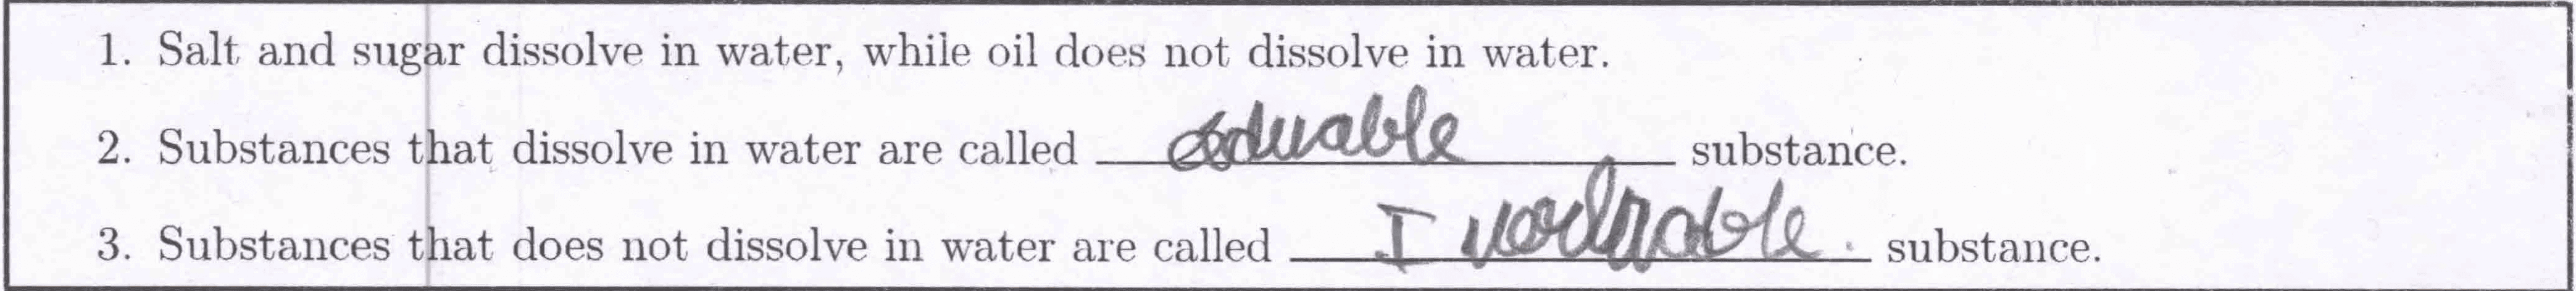 1. Salt and sugar dissolve in water, while oil does not dissolve in water.
2. Substances that dissolve in water are called substance.
3. Substances that does not dissolve in water are called substance.